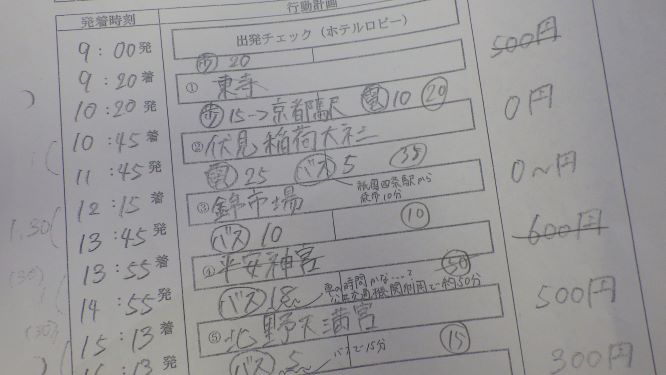 発着時刻 行動計画
出発チェック(ホテルロビー)
9:00発 歩 20 500円
9:20着 ① 東寺
10:20発 歩 15→京都駅 電 10 20 0円
10:45着 ② 伏見稲荷大社
11:45発 電 25 バス 5 35 0～円
祇園四条駅から
徒歩10分
12:15着 ③ 錦市場
1.30
13:45発 バス 10 10 600円
13:55着 ④ 平安神宮
(35)
14:55発 バス 50 500円
車の時間かな…?
公共交通機関利用で約50分
15:13着 ⑤ 北野天満宮
(30)
13発 バス 5 バスで15分 15 300円